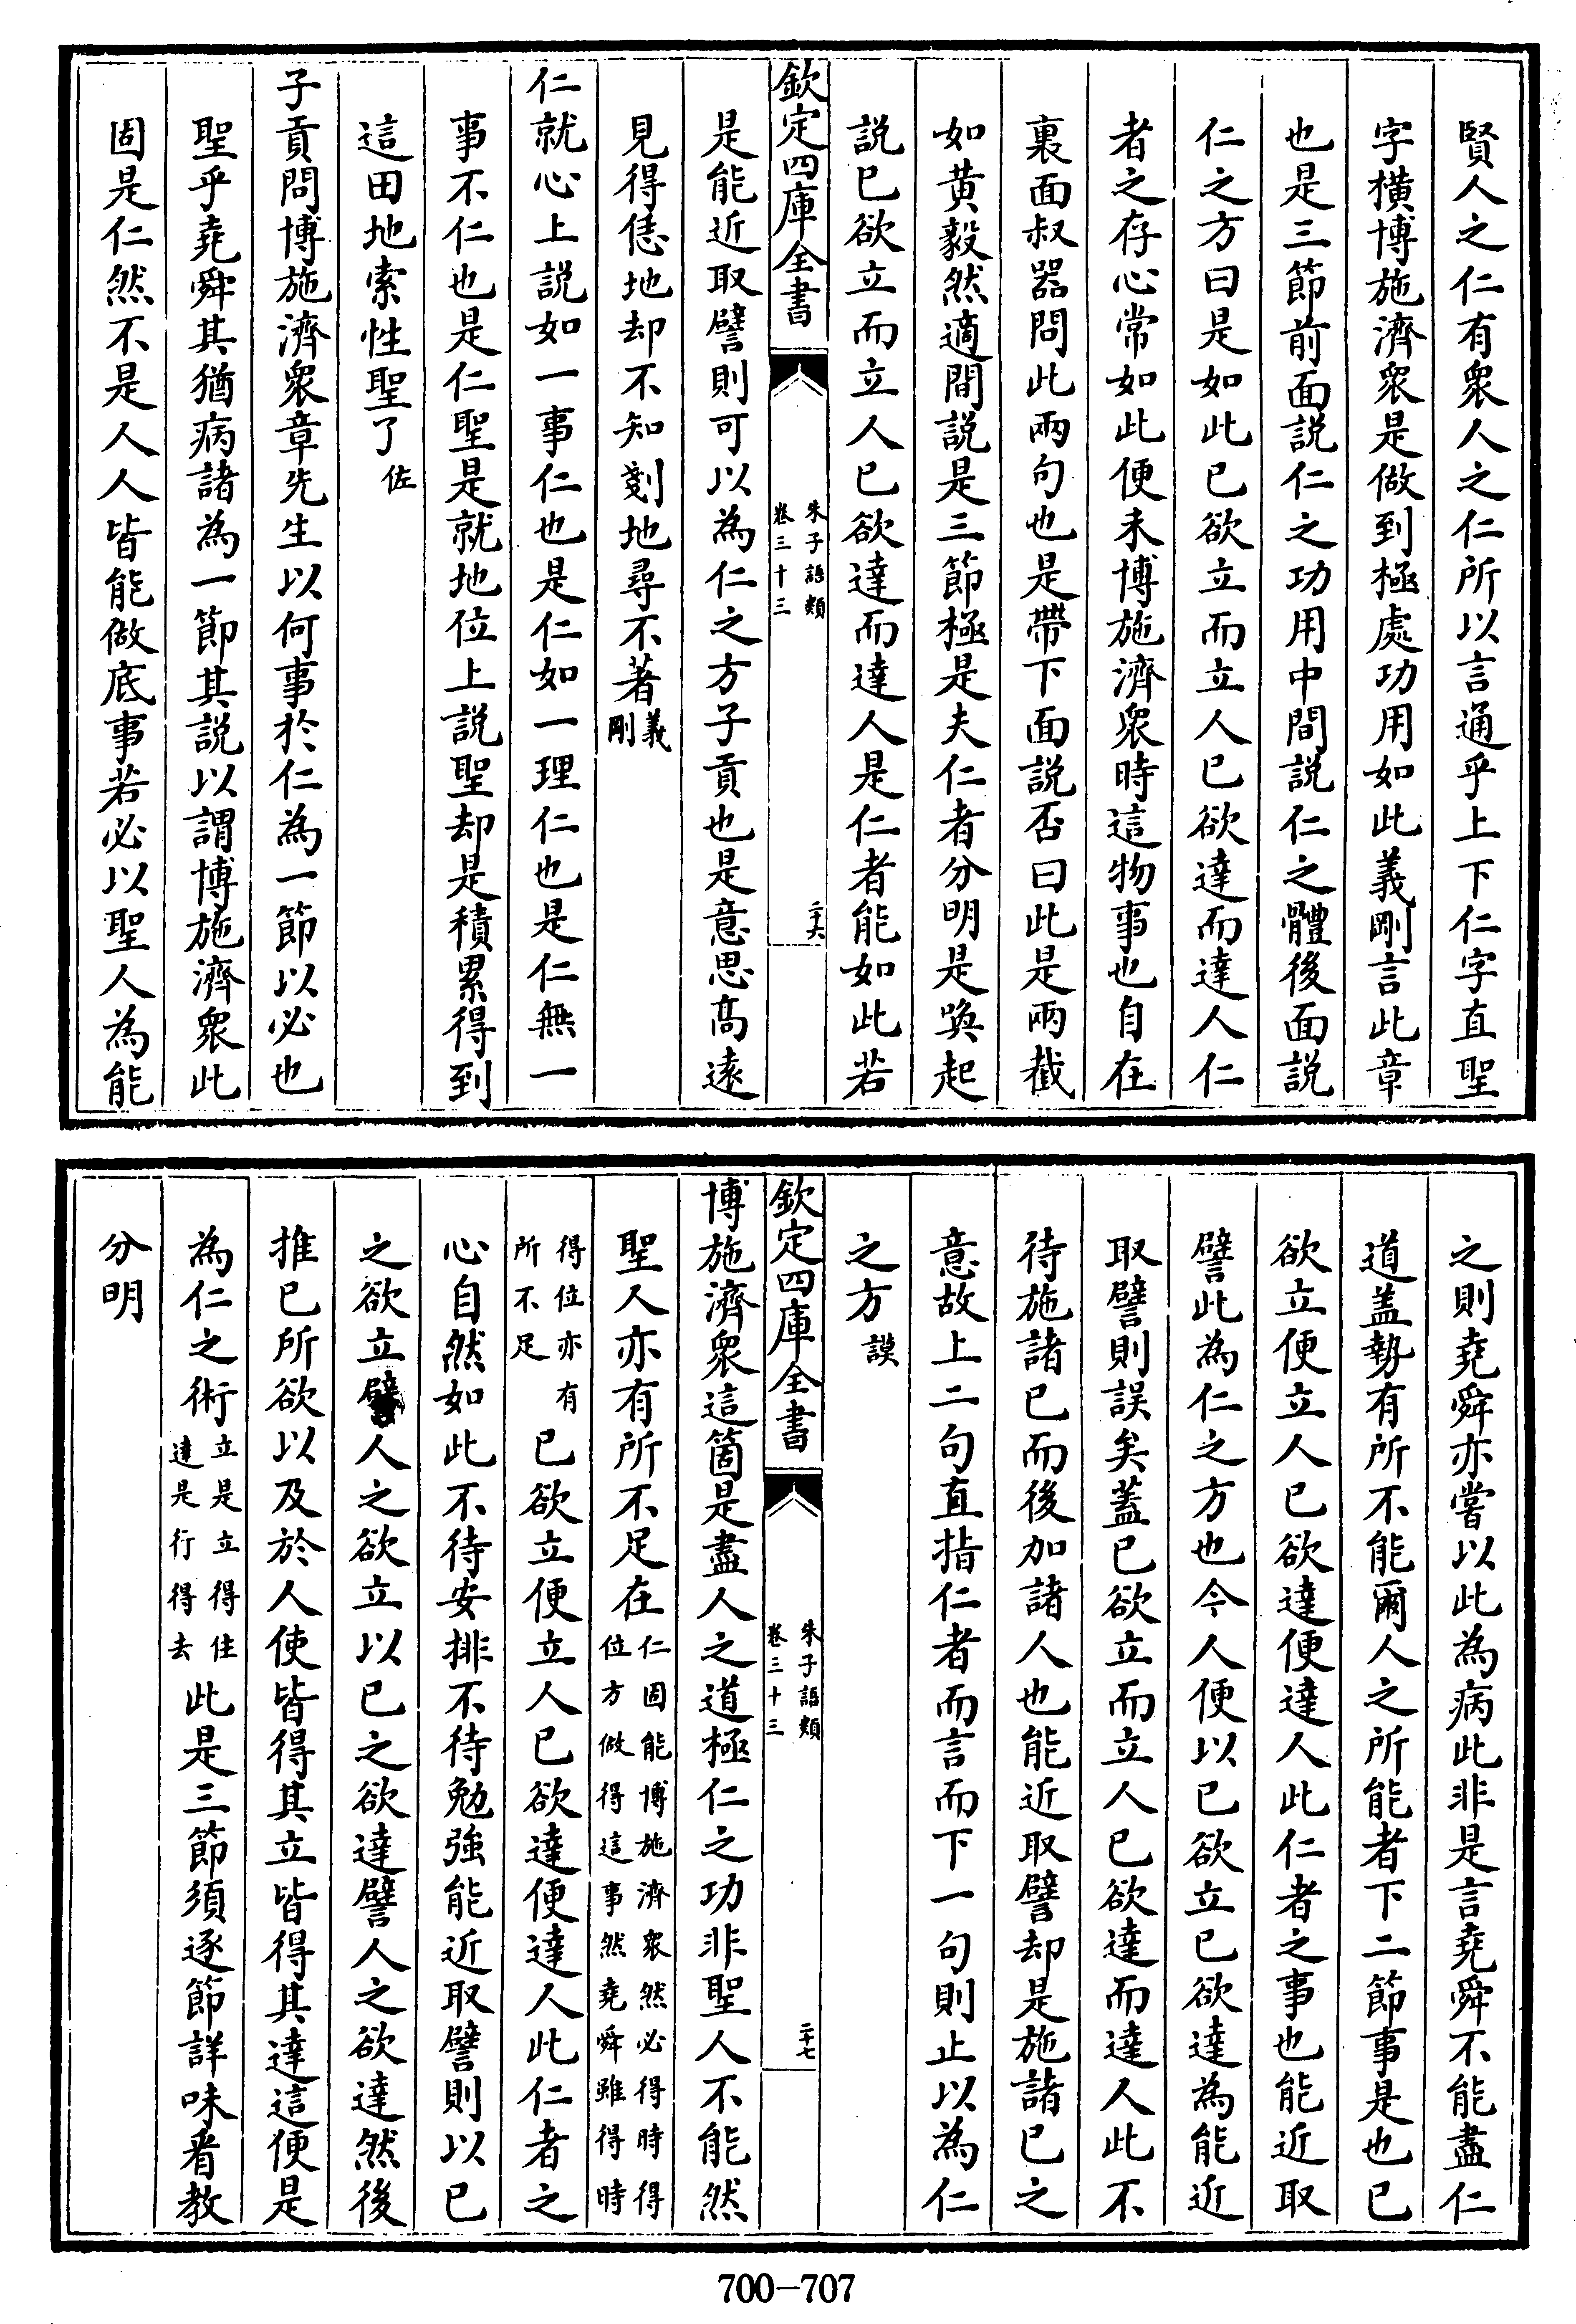 賢人之仁有衆人之仁所以言通乎上下仁字直聖
字橫博施濟衆是做到極處功用如此義剛言此章
也是三節前面説仁之功用中間説仁之體後面説
仁之方曰是如此己欲立而立人己欲達而達人仁
者之存心常如此便未博施濟衆時這物事也自在
裏面叔器問此兩句也是帶下面説否曰此是兩截
如黄毅然適間説是三節極是夫仁者分明是喚起
説己欲立而立人己欲達而達人是仁者能如此若
欽定四庫全書
朱子語類
卷三十三
二十六
是能近取譬則可以為仁之方子貢也是意思髙逺
見得恁地却不知剗地尋不著義剛
仁就心上説如一事仁也是仁如一理仁也是仁無一
事不仁也是仁聖是就地位上説聖却是積累得到
這田地索性聖了佐
子貢問博施濟衆章先生以何事於仁為一節以必也
聖乎堯舜其猶病諸為一節其説以謂博施濟衆此
固是仁然不是人人皆能做底事若必以聖人為能
之則堯舜亦嘗以此為病此非是言堯舜不能盡仁
道盖勢有所不能爾人之所能者下二節事是也己
欲立便立人己欲達便達人此仁者之事也能近取
譬此為仁之方也今人便以己欲立己欲達為能近
取譬則誤矣蓋己欲立而立人己欲達而達人此不
待施諸己而後加諸人也能近取譬却是施諸己之
意故上二句直指仁者而言而下一句則止以為仁
之方謨
欽定四庫全書
朱子語類
卷三十三
二十七
博施濟衆這箇是盡人之道極仁之功非聖人不能然
聖人亦有所不足在仁固能博施濟衆然必得時得位方做得這事然堯舜雖得時
得位亦有所不足己欲立便立人己欲達便達人此仁者之
心自然如此不待安排不待勉強能近取譬則以己
之欲立譬人之欲立以己之欲達譬人之欲達然後
推己所欲以及於人使皆得其立皆得其達這便是
為仁之術立是立得住達是行得去此是三節須逐節詳味看教
分明
700-707